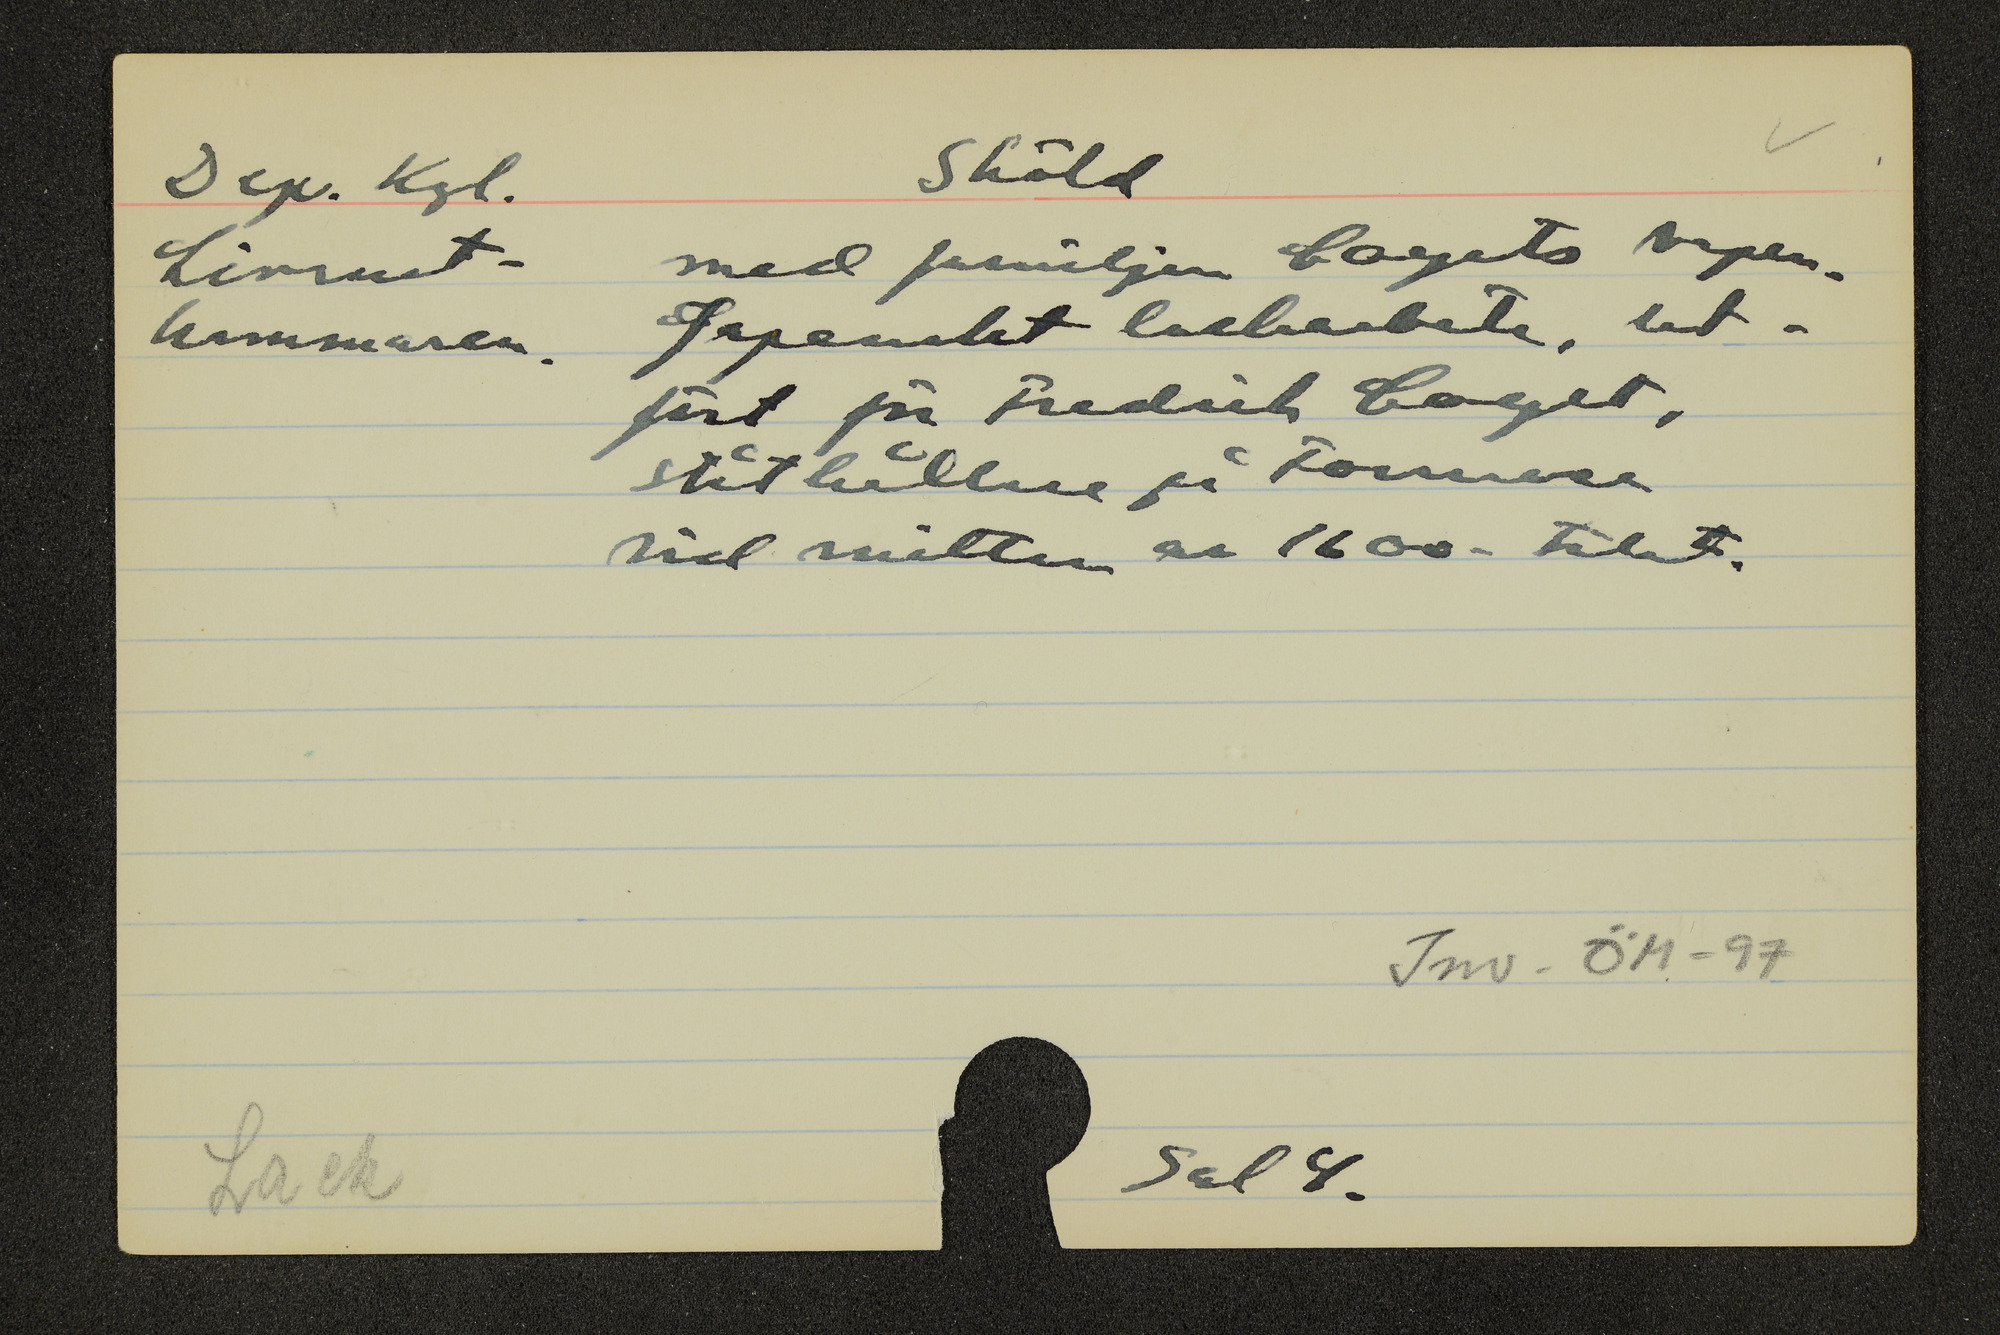 Dep. Kgl.
Livrust-
kammaren.
Sköld
med familjen Coyets vapen.
Japanskt lackarbete, ut-
fört för Fredrik Coyet,
ståthållare på Formosa
vid mitten av 1600-talet.
Inv. ÖM-97
Lack
Sal 8.